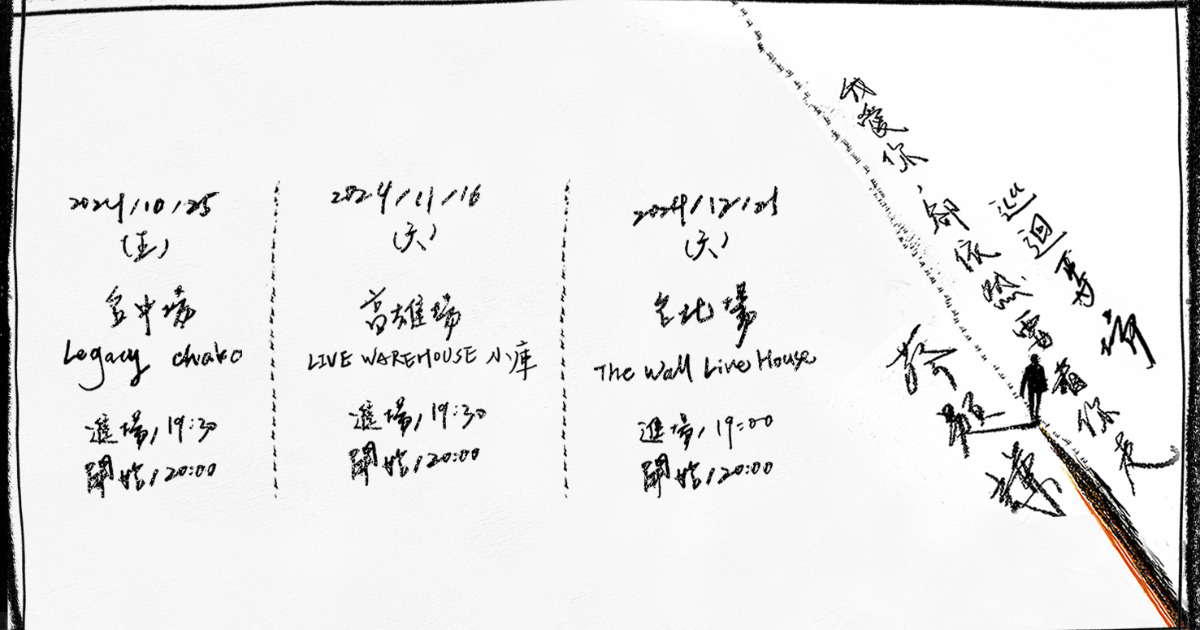 2024/10/25
(五)
台中場
Legacy
進場/19:30
開始/20:00
2024/11/16
(六)
高雄場
LIVE WAREHOUSE 小庫
進場/19:30
開始/20:00
2024/12/21
(六)
台北場
The Wall Live House
進場/19:00
開始/20:00
我愛你，卻依然要
巡迴專場